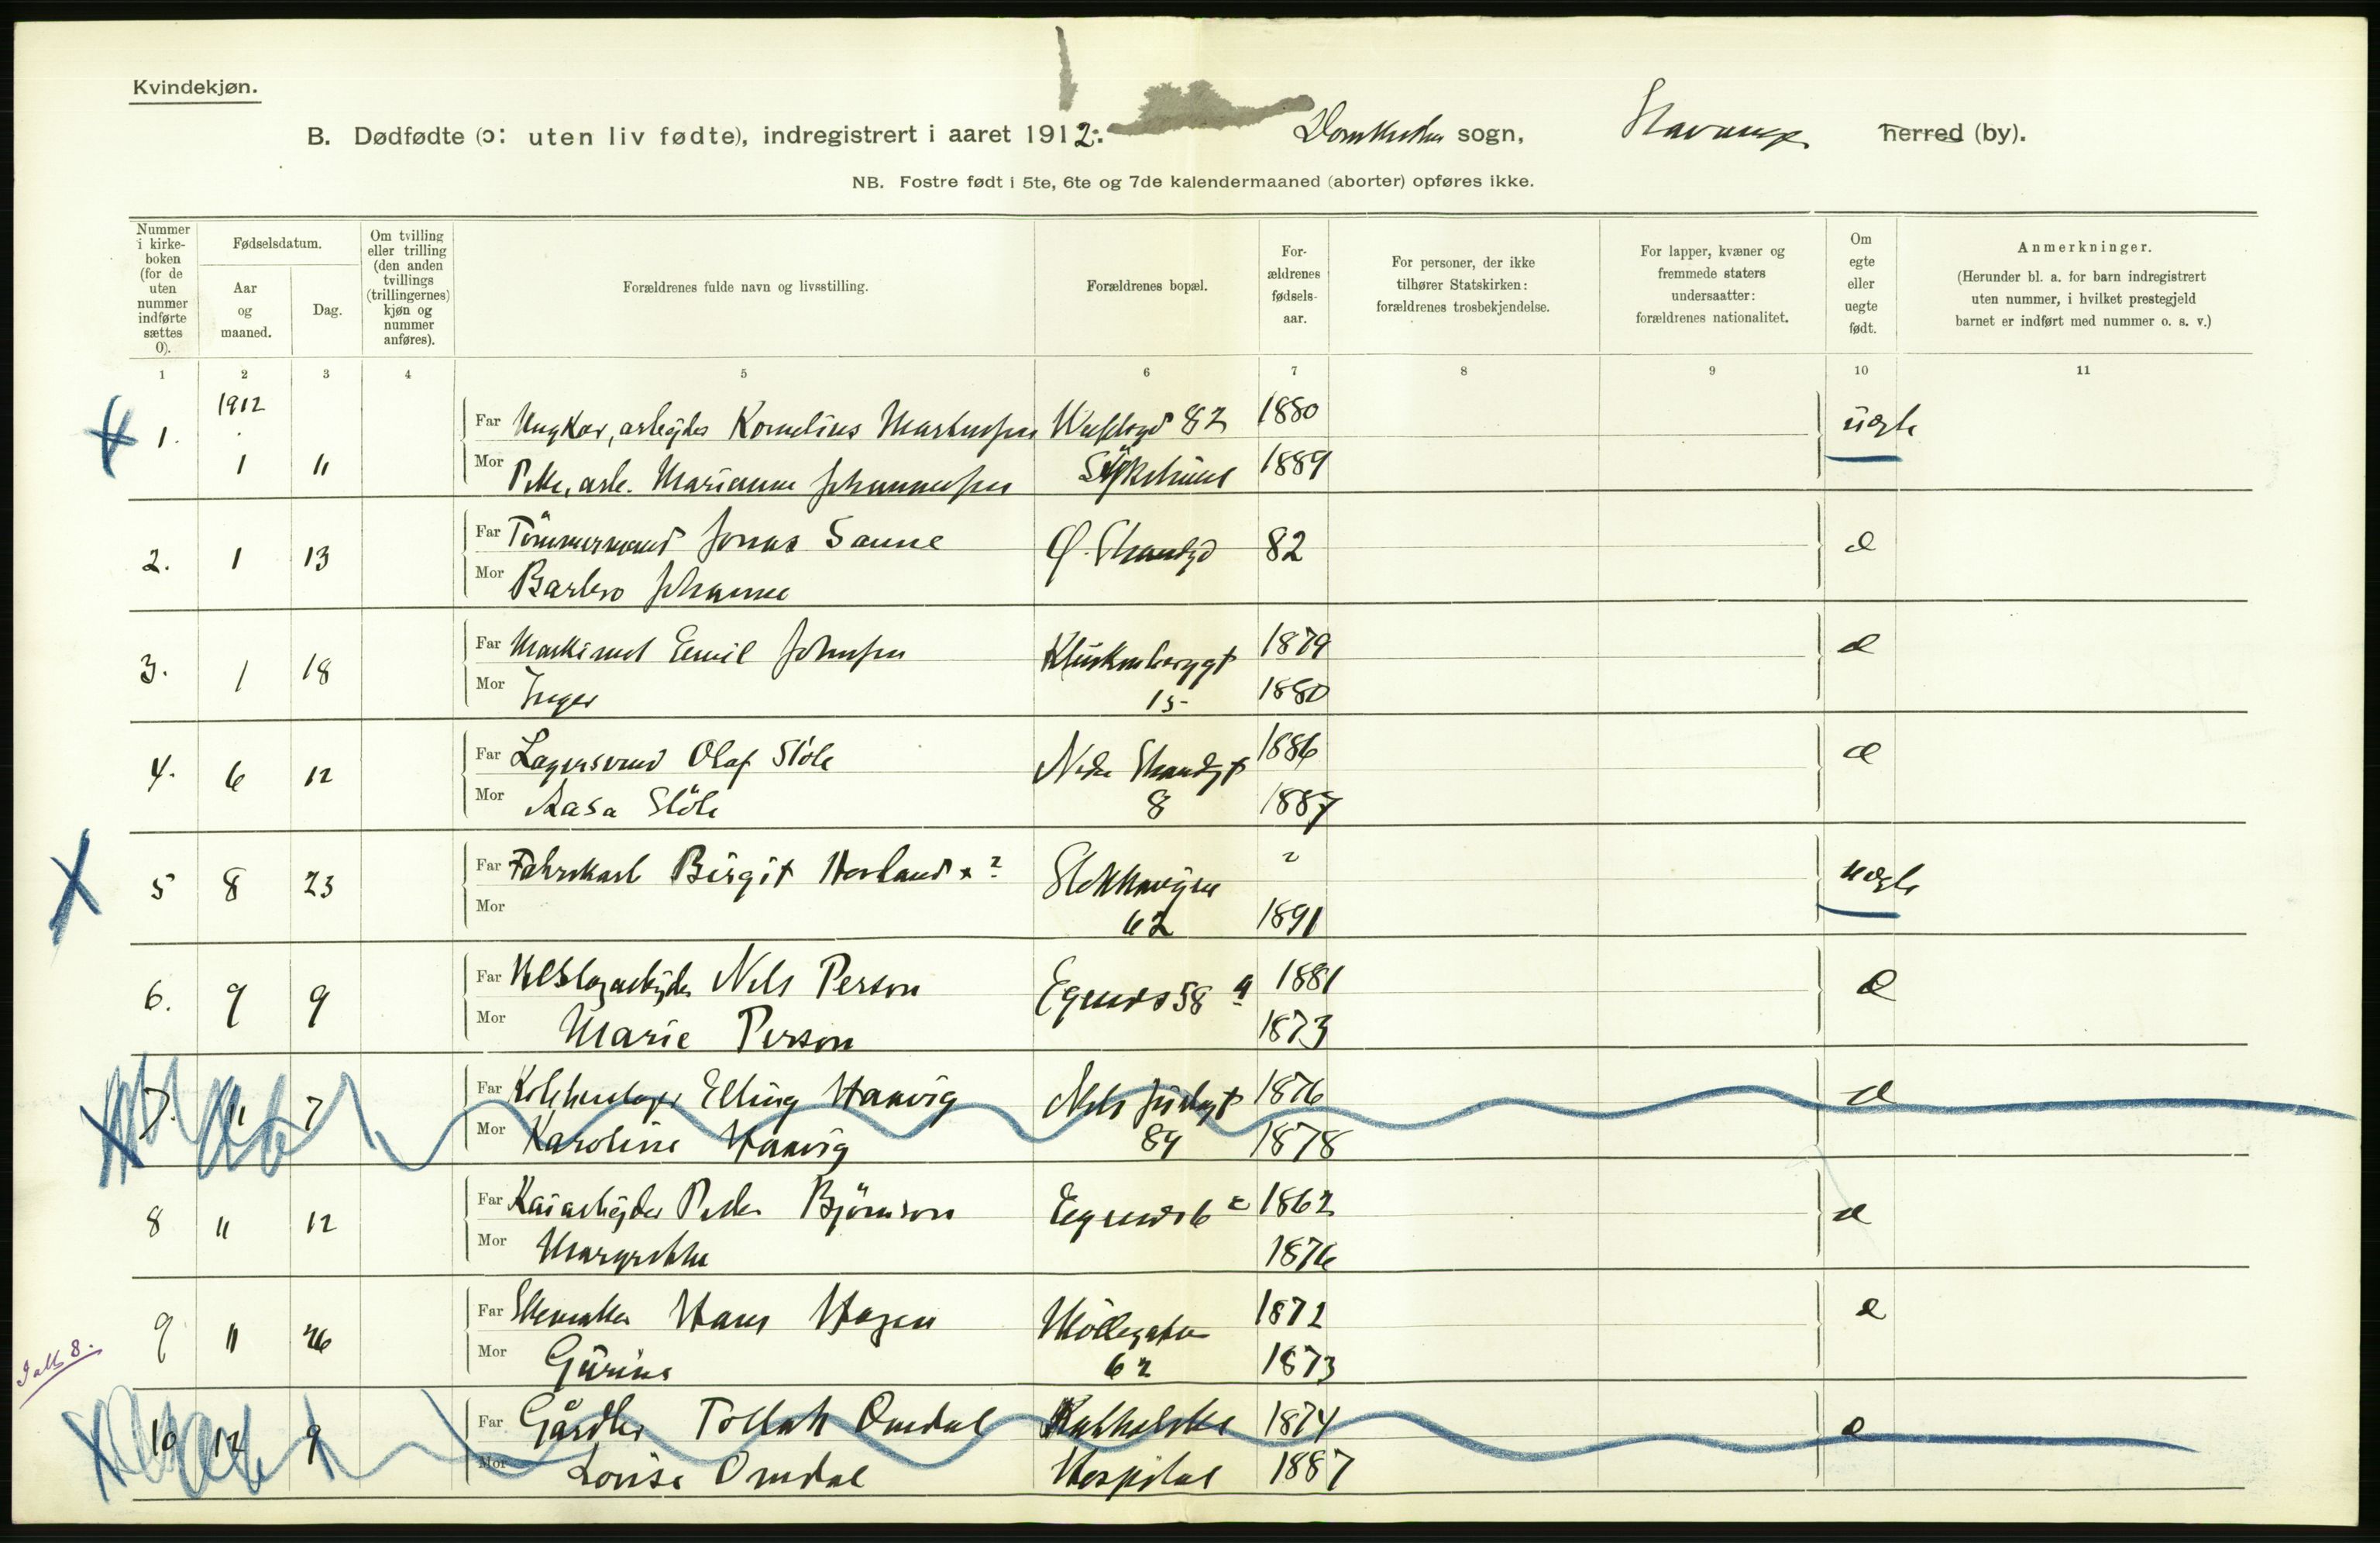 Kvindekjøn.
B. Dødfødte (ɔ: uten liv fødte), indregistrert i aaret 1912. Domkirken sogn, Stavanger herred (by).
NB. Fostre født i 5te, 6te og 7de kalendermaaned (aborter) opføres ikke.
Nummer i kirke-boken (for de uten nummer indførte sættes 0).
Fødselsdatum.
Aar og maaned.
Dag.
Om tvilling eller trilling (den anden tvillings (trillingernes) kjøn og nummer anføres).
Forældrenes fulde navn og livsstilling.
Forældrenes bopæl.
For-ældrenes fødsels-aar.
For personer, der ikke tilhører Statskirken: forældrenes trosbekjendelse.
For lapper, kvæner og fremmede staters undersaatter: forældrenes nationalitet.
Om egte eller uegte født.
Anmerkninger.
(Herunder bl. a. for barn indregistrert uten nummer, i hvilket prestegjeld barnet er indført med nummer o. s. v.)
1 2 3 4 5 6 7 8 9 10 11
1912
1. Far Ungkar, arbejder Kornelius 82 1880 uegte
1 11 Mor Pike, arb. Marianne Johannessen 1889
2. 1 13 Far Tömmermand Jonas Sanne Ø. Strandgd 82 e
Mor Barbro Johanne
3. 1 18 Far Maskinist Emil Johnsen 1879 e
Mor Inger 15 1880
4. 6 12 Far Lagersvend Olaf Stöle Nedre Strandgt 1886 e
Mor Aasa Stöle 8 1887
5 8 23 Far Birgit Hovland x ? Stokkavejen ? uegte
Mor 62 1891
6. 9 9 Far Nils Person Egenes 58 a 1881 e
Mor Marie Person 1873
7. 11 7 Far Elling Hanvig Nils Juelsgt 1876 e
Mor Karoline Hanvig 84 1878
8 11 12 Far Kaiarbejder Peder Björnson Egenes 6 c 1862 e
Mor Margrethe 1876
9 11 26 Far Hans Hagen Möllegaten 1872 e
Mor Gurine 62 1873
Ialt 8.
10 12 9 Far Tollak Omdal Katholske 1874 e
Mor Lovise Omdal Hospital 1887